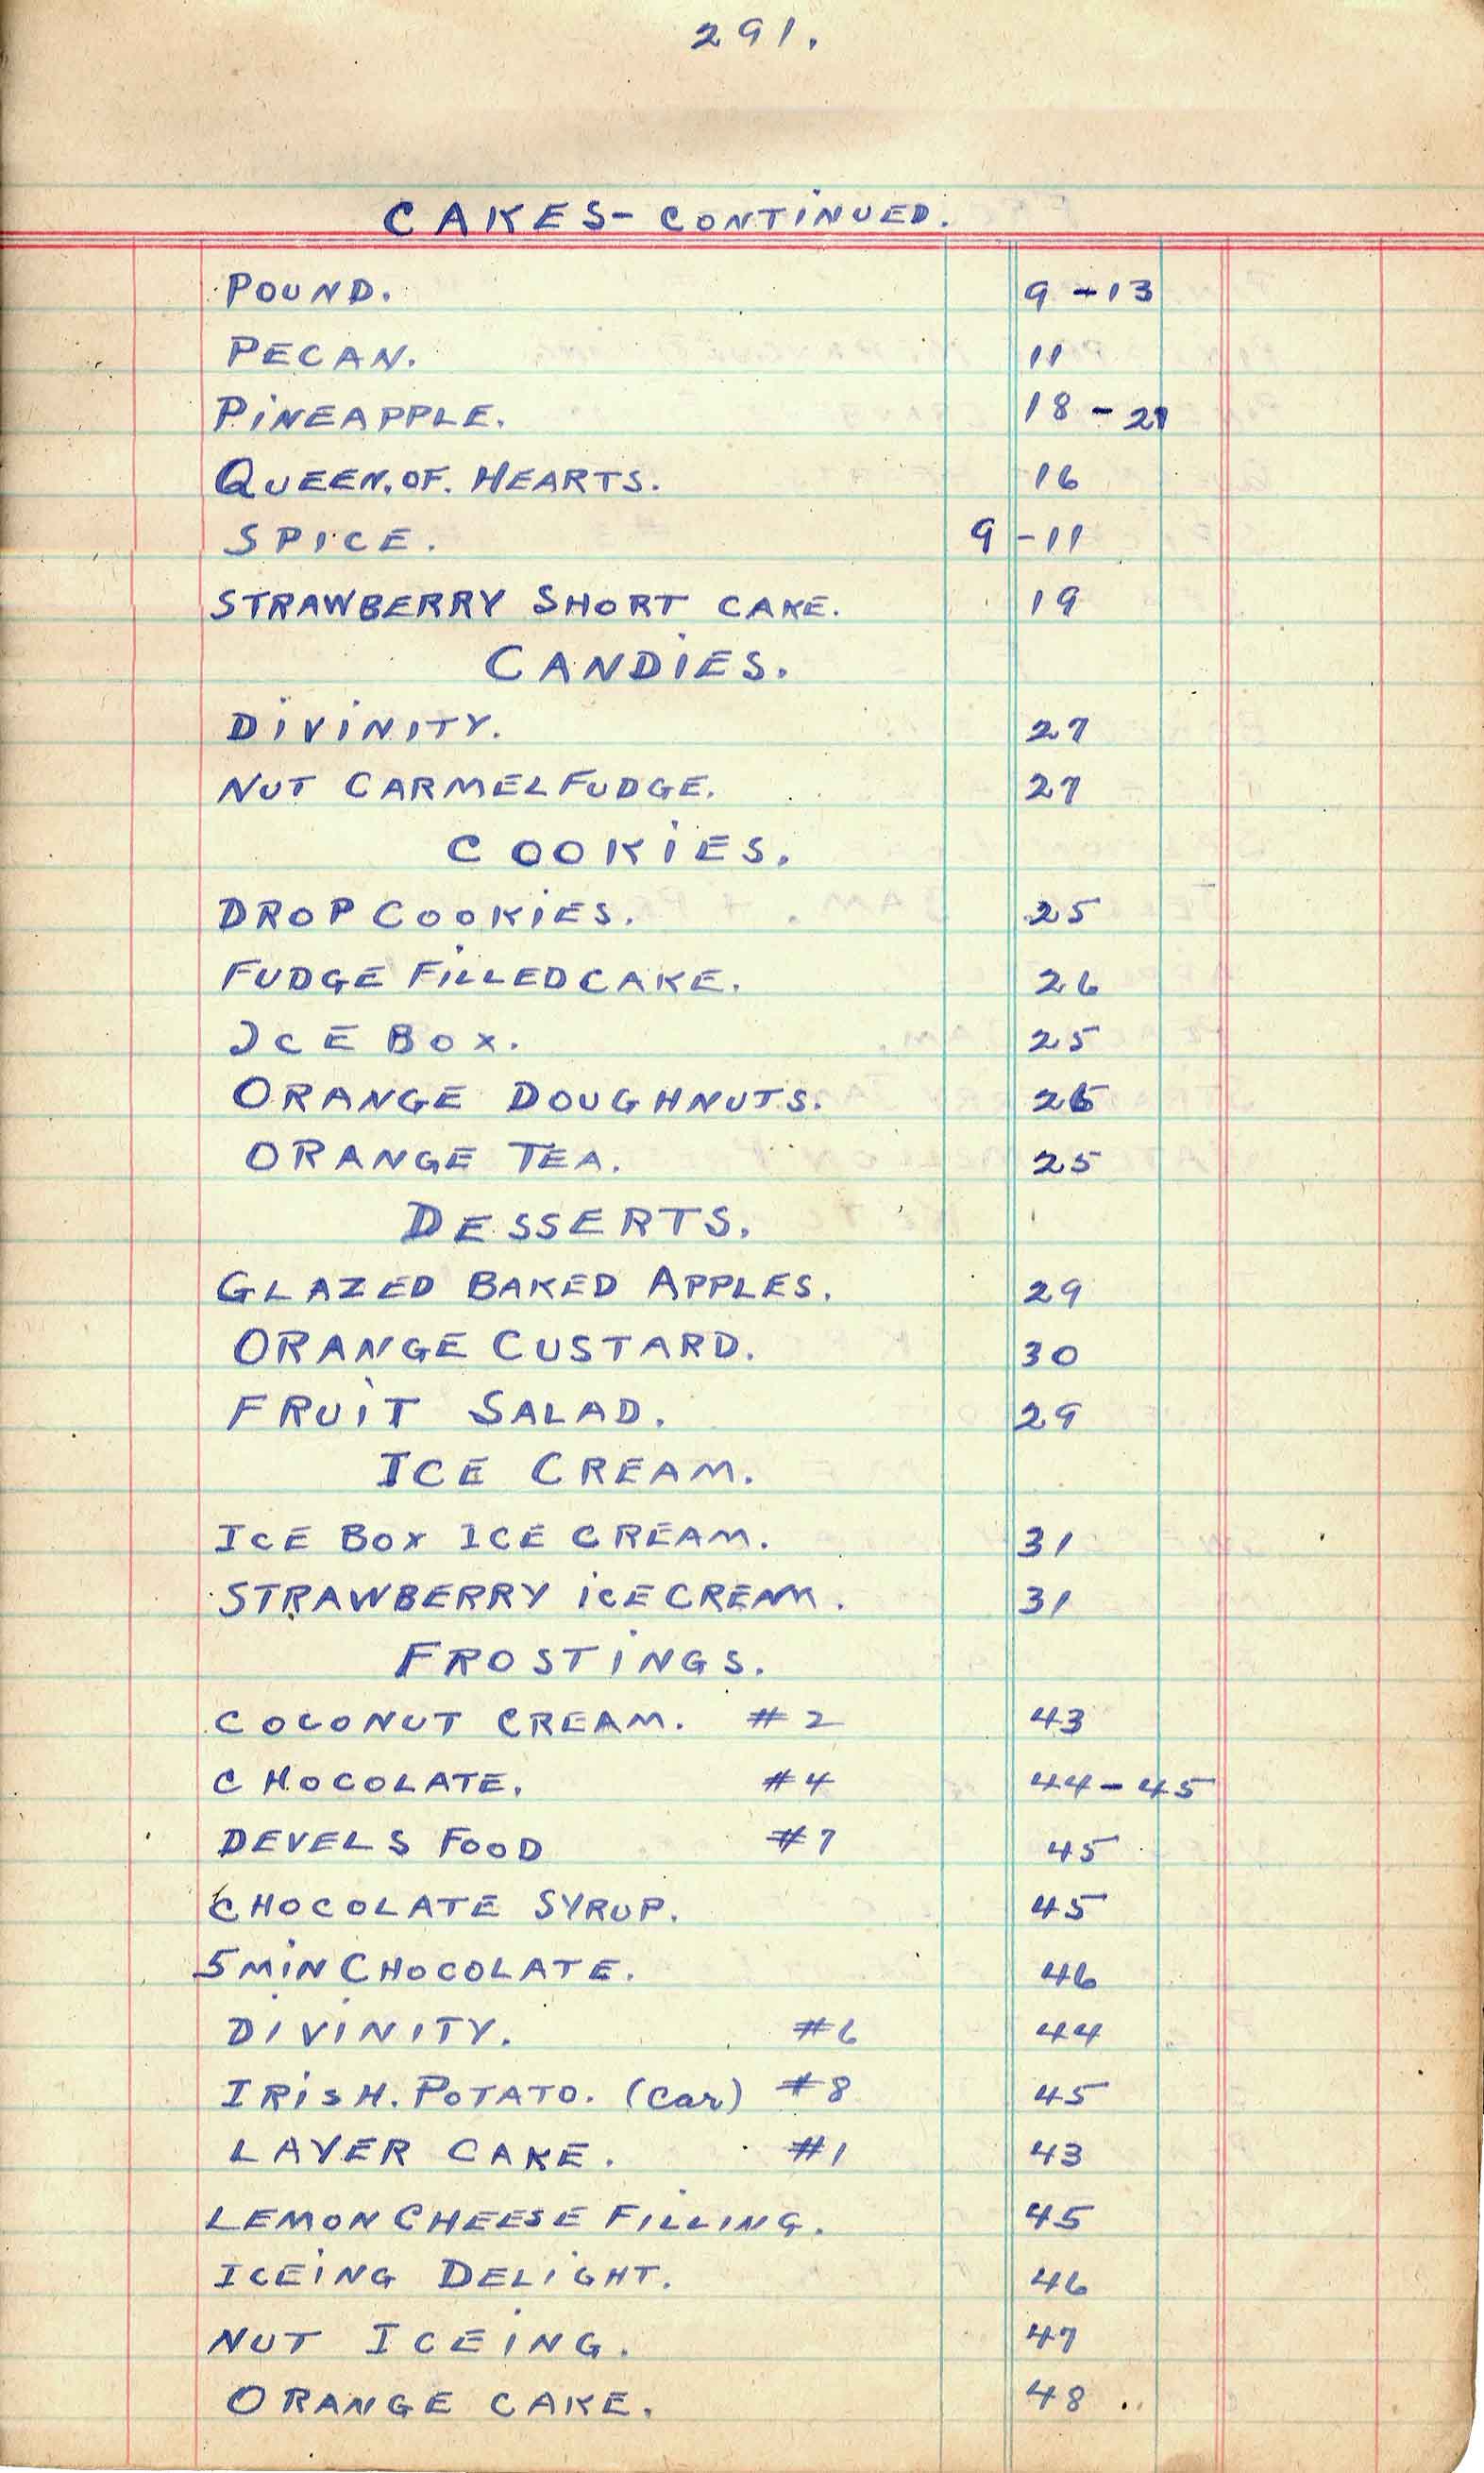 291.
CAKES - CONTINUED.
POUND. 9 - 13
PECAN. 11
PINEAPPLE. 18 - 21
QUEEN. OF. HEARTS. 16
SPICE. 9 - 11
STRAWBERRY SHORT CAKE. 19
CANDIES.
DIVINITY. 27
NUT CARMEL FUDGE. 27
COOKIES.
DROP COOKIES. 25
FUDGE FILLED CAKE. 26
ICE BOX. 25
ORANGE DOUGHNUTS. 26
ORANGE TEA. 25
DESSERTS.
GLAZED BAKED APPLES. 29
ORANGE CUSTARD. 30
FRUIT SALAD. 29
ICE CREAM.
ICE BOX ICE CREAM. 31
STRAWBERRY ICE CREAM. 31
FROSTINGS.
COCONUT CREAM. #2 43
CHOCOLATE. #4 44 - 45
DEVELS FOOD #7 45
CHOCOLATE SYRUP. 45
5 MIN CHOCOLATE. 46
DIVINITY. #6 44
IRISH. POTATO. (Car) #8 45
LAYER CAKE. #1 43
LEMON CHEESE FILLING. 45
ICEING DELIGHT. 46
NUT ICEING. 47
ORANGE CAKE. 48